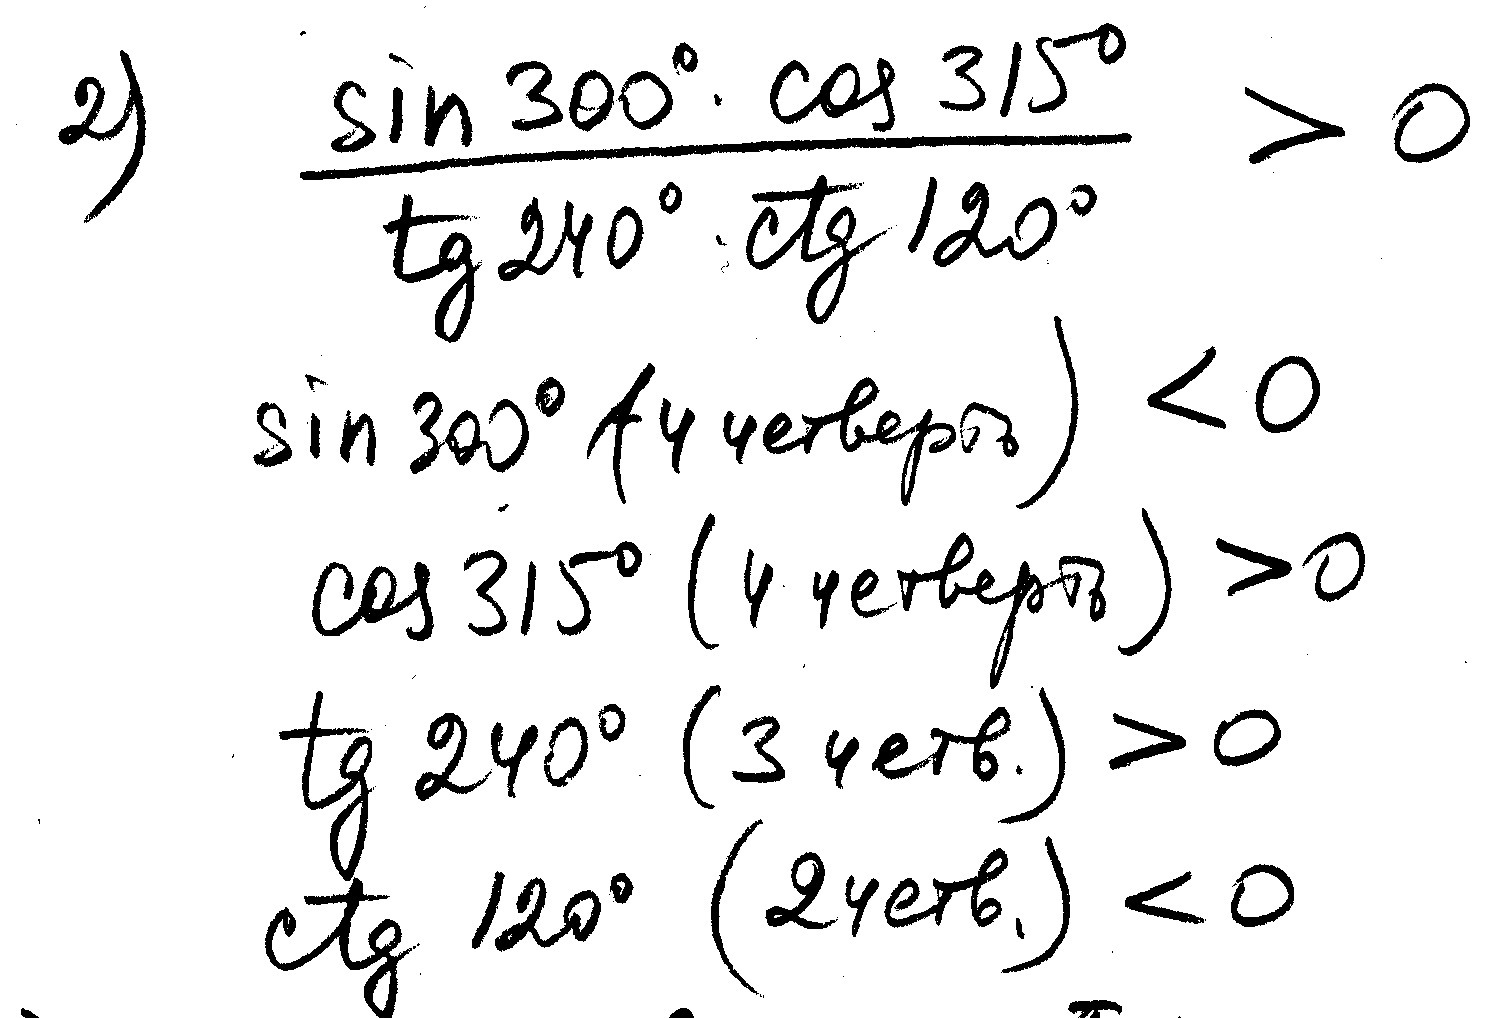 2) sin 300° · cos 315° > 0
tg 240° · ctg 120°
sin 300° (4 четверть) < 0
cos 315° (4 четверть) > 0
tg 240° (3 четв.) > 0
ctg 120° (2 четв.) < 0